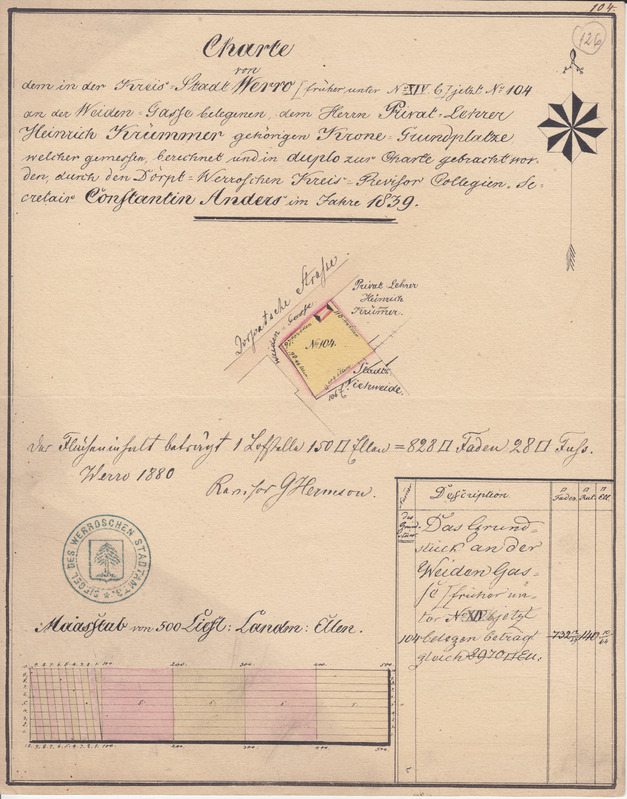 104.
126
Charte
von
dem in der Kreis-Stadt Werro [früher unter No XIV 6] jetzt No 104
an der Weiden-Gasse belegenen, dem Herrn Privat-Lehrer
Heinrich Krümmer gehörigen Krons-Grundplatze
welcher gemessen, berechnet und in duplo zur Charte gebracht wor-
den, durch den Dörpt-Werroschen Kreis-Revisor Collegien-Se-
cretair Constantin Anders im Jahre 1839.
Dorpatsche Straße.
Weiden-Gasse
Privat-Lehrer
Heinrich
Krümmer.
No 104.
Stadts
Viehweide.
Der Flächeninhalt beträgt 1 Lofstelle 150 □ Ellen = 828 □ Faden 28 □ Fuss.
Werro 1880
Revisor G Hermson.
SIEGEL DES WERROSCHEN STADTAMTS
Description.
□ Faden □ Rut. □ Ell.
Das Grund-
stück an der
Weiden Gas-
se [früher un-
ter No XIV 6] jetzt
104 belegen beträgt 732 140
gleich 2970 □ Ell:
Maasstab von 500 Liefl: Landm: Ellen.
100. 200. 300. 400. 500.
5. 5. 5. 5.
100. 200. 300. 400. 500.